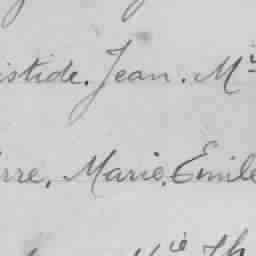 istide. Jean. M
rre, Marie, Emile